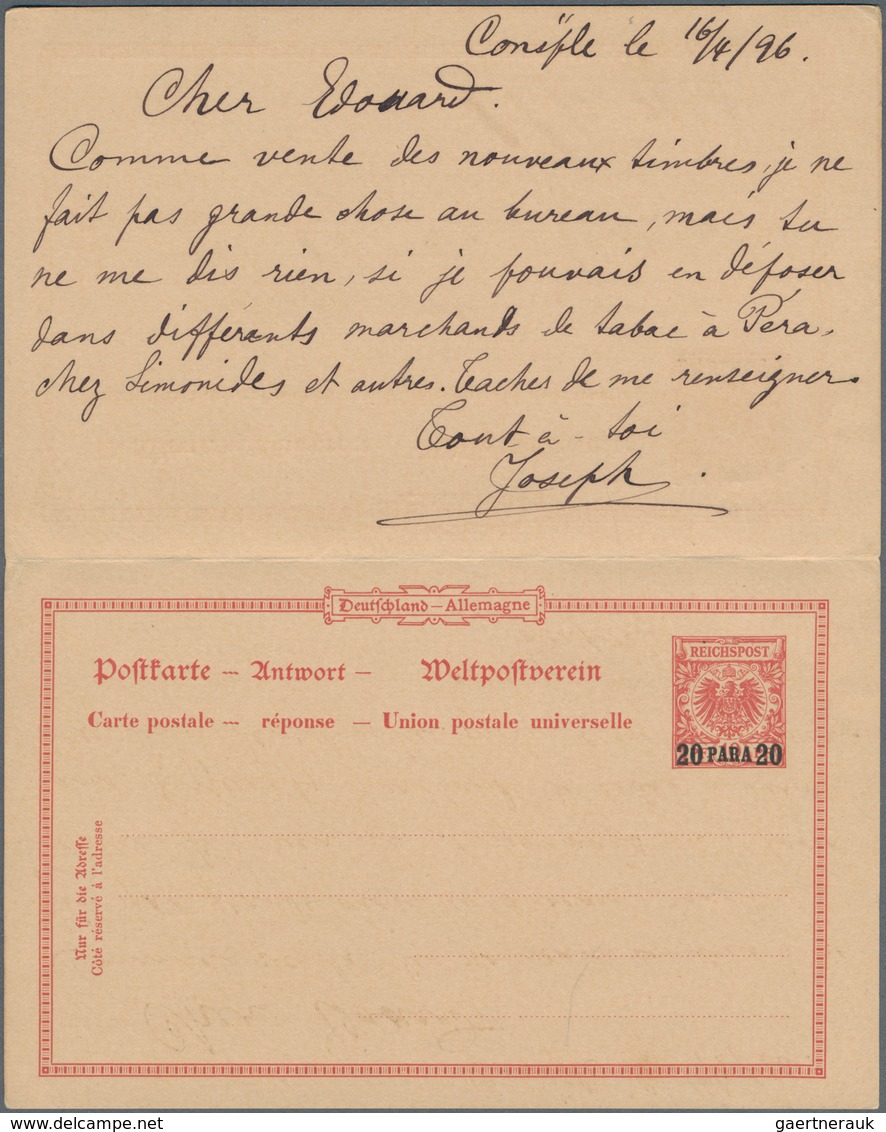 Consple le 16/4/96.
Cher Edouard.
Comme vente des nouveaux timbres, je ne
fait pas grande chose au bureau, mais tu
ne me dis rien, si je pouvais en déposer
dans différents marchands de tabac à Péra,
chez Simonides et autres. Tacher de me renseigner.
Tout-à-toi
Joseph.
Deutschland – Allemagne
Postkarte – Antwort – Weltpostverein
Carte postale – réponse – Union postale universelle
REICHSPOST
20 PARA 20
Nur für die Adresse
Côté réservé à l'adresse
delcampe.net
gaertnerauk